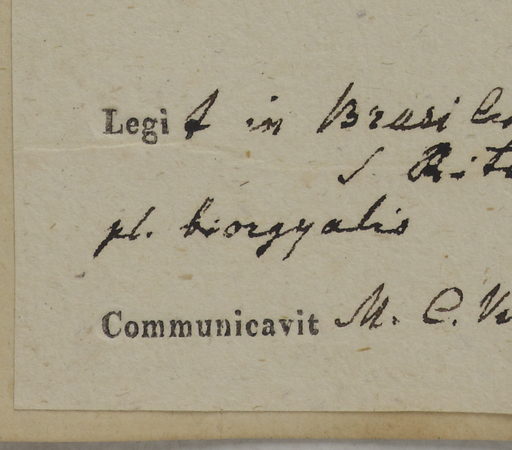 Legit in Brasil
S. Rit
pl. biorgyalis
Communicavit M. C. V